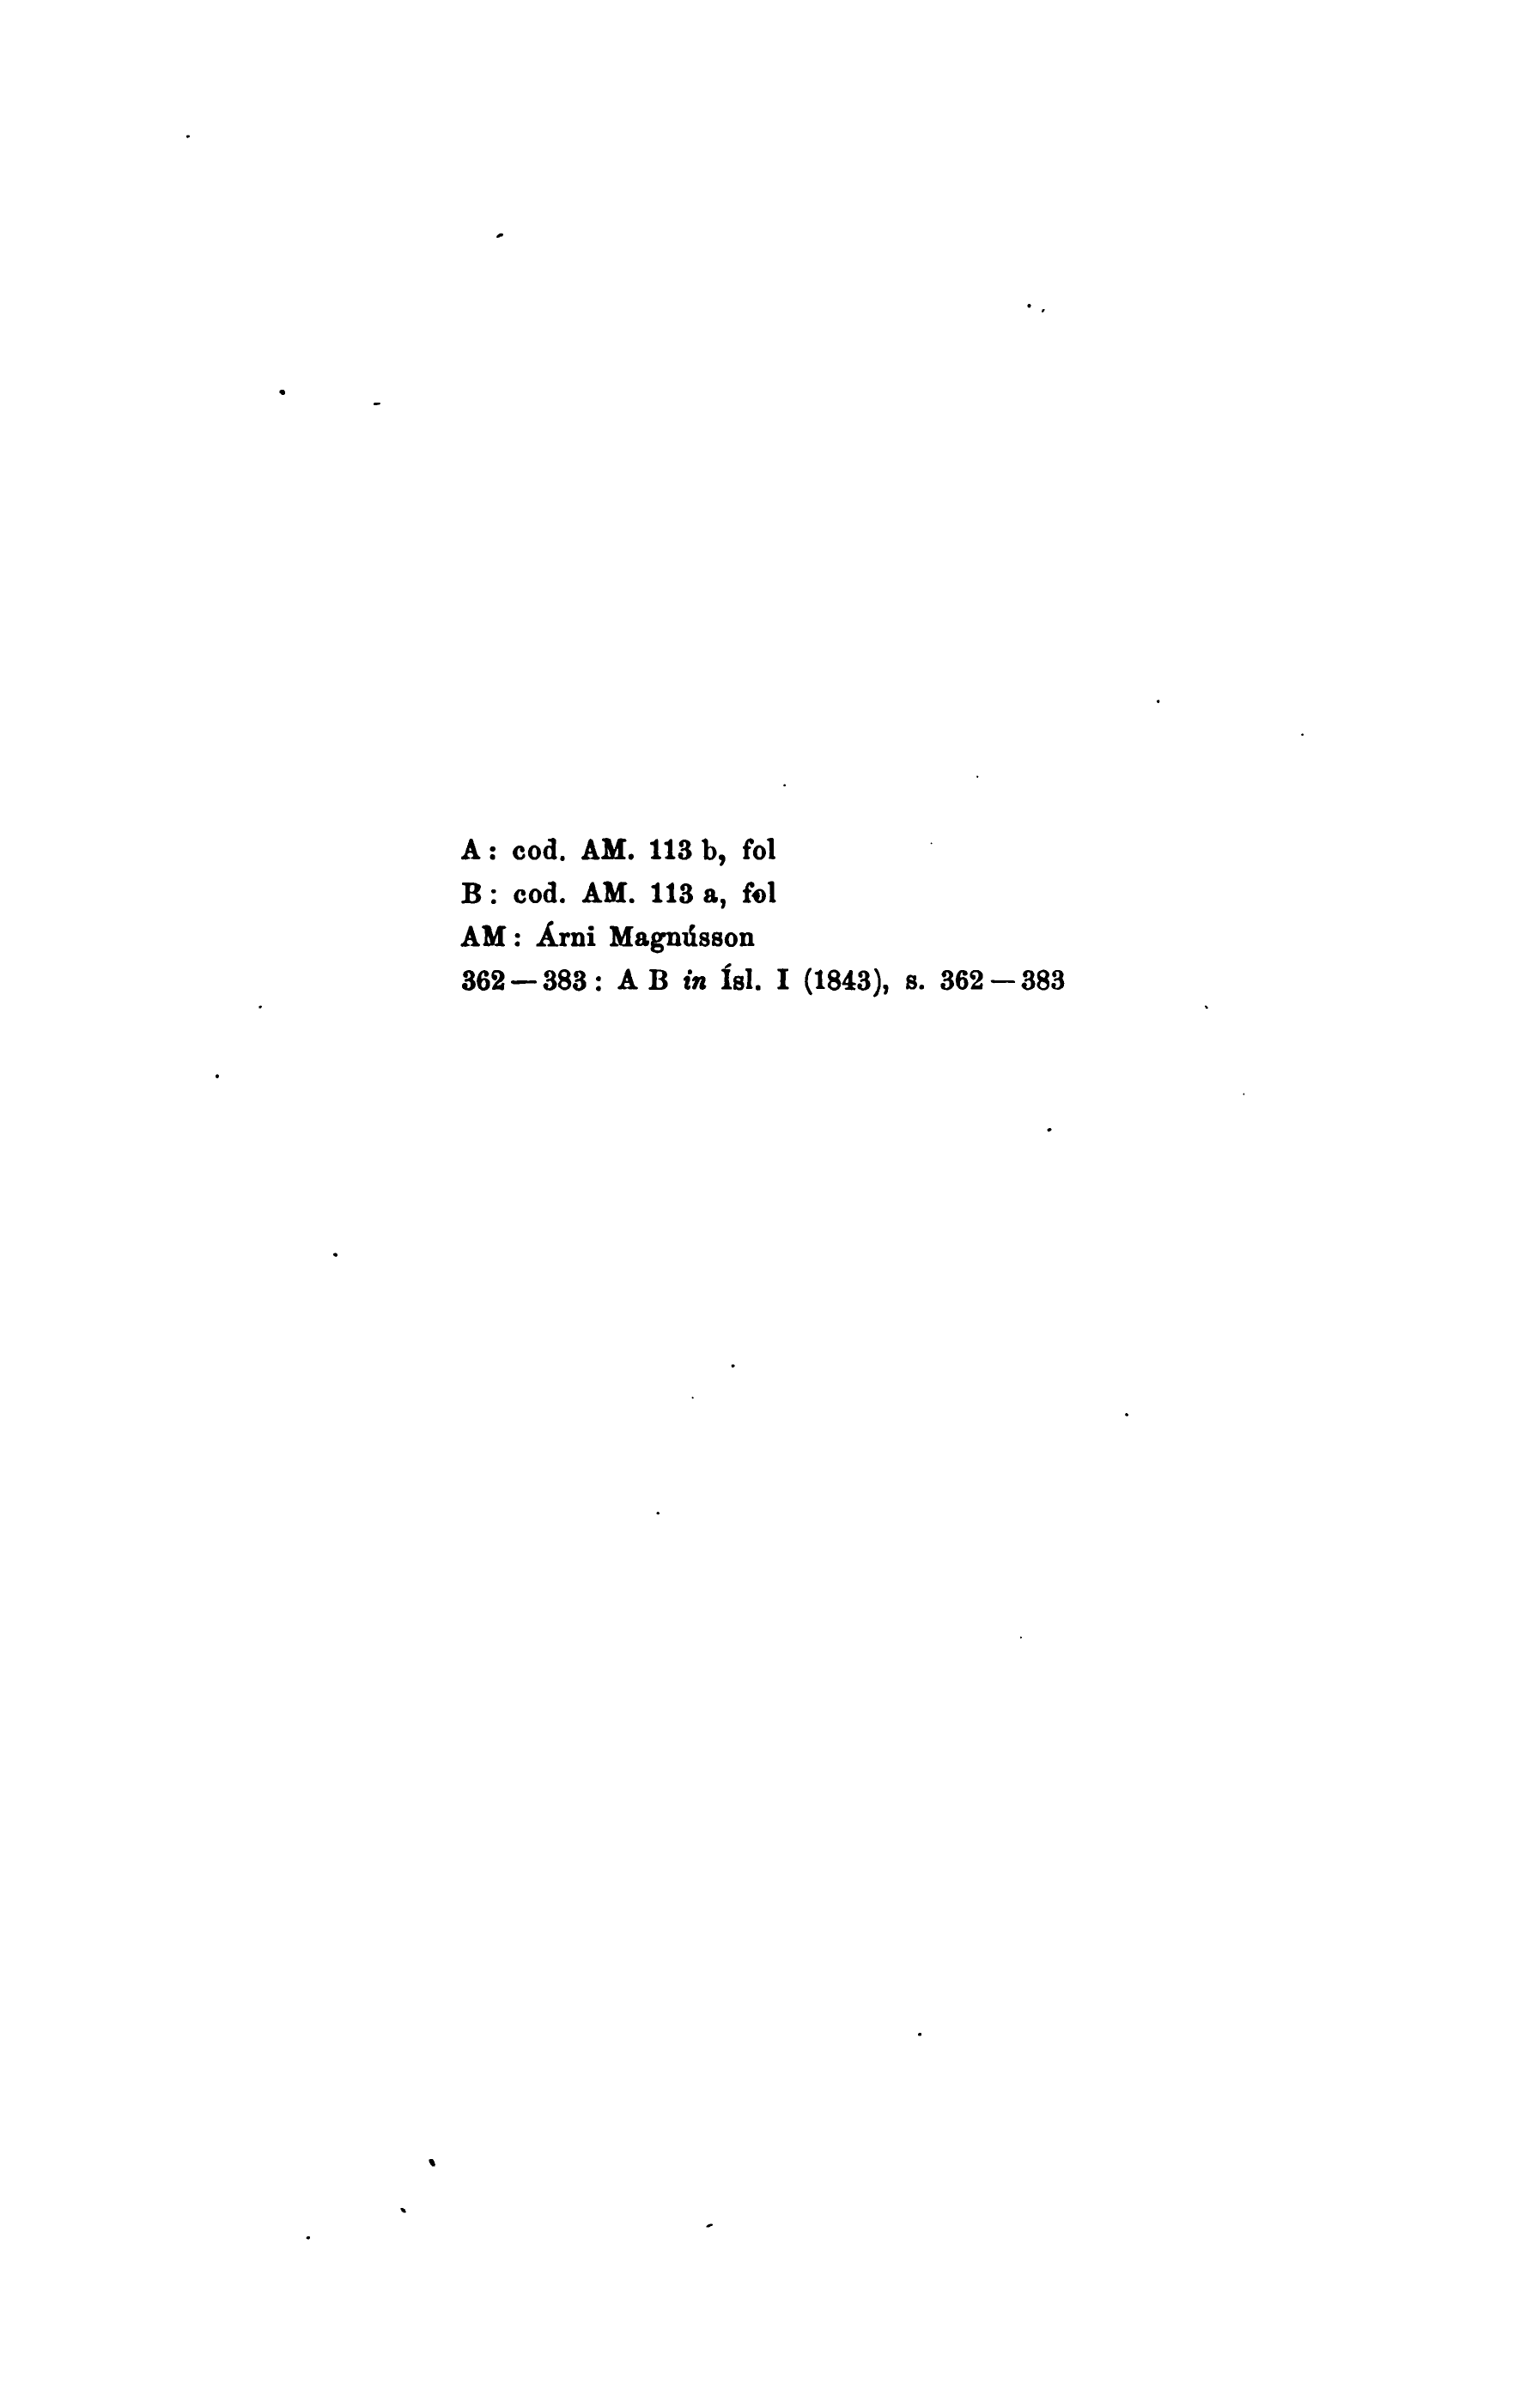 A: cod. AM. 113 b, fol
B: cod. AM. 113 a, fol
AM: Árni Magnússon
362—383: A B in Ísl. I (1843), s. 362—383